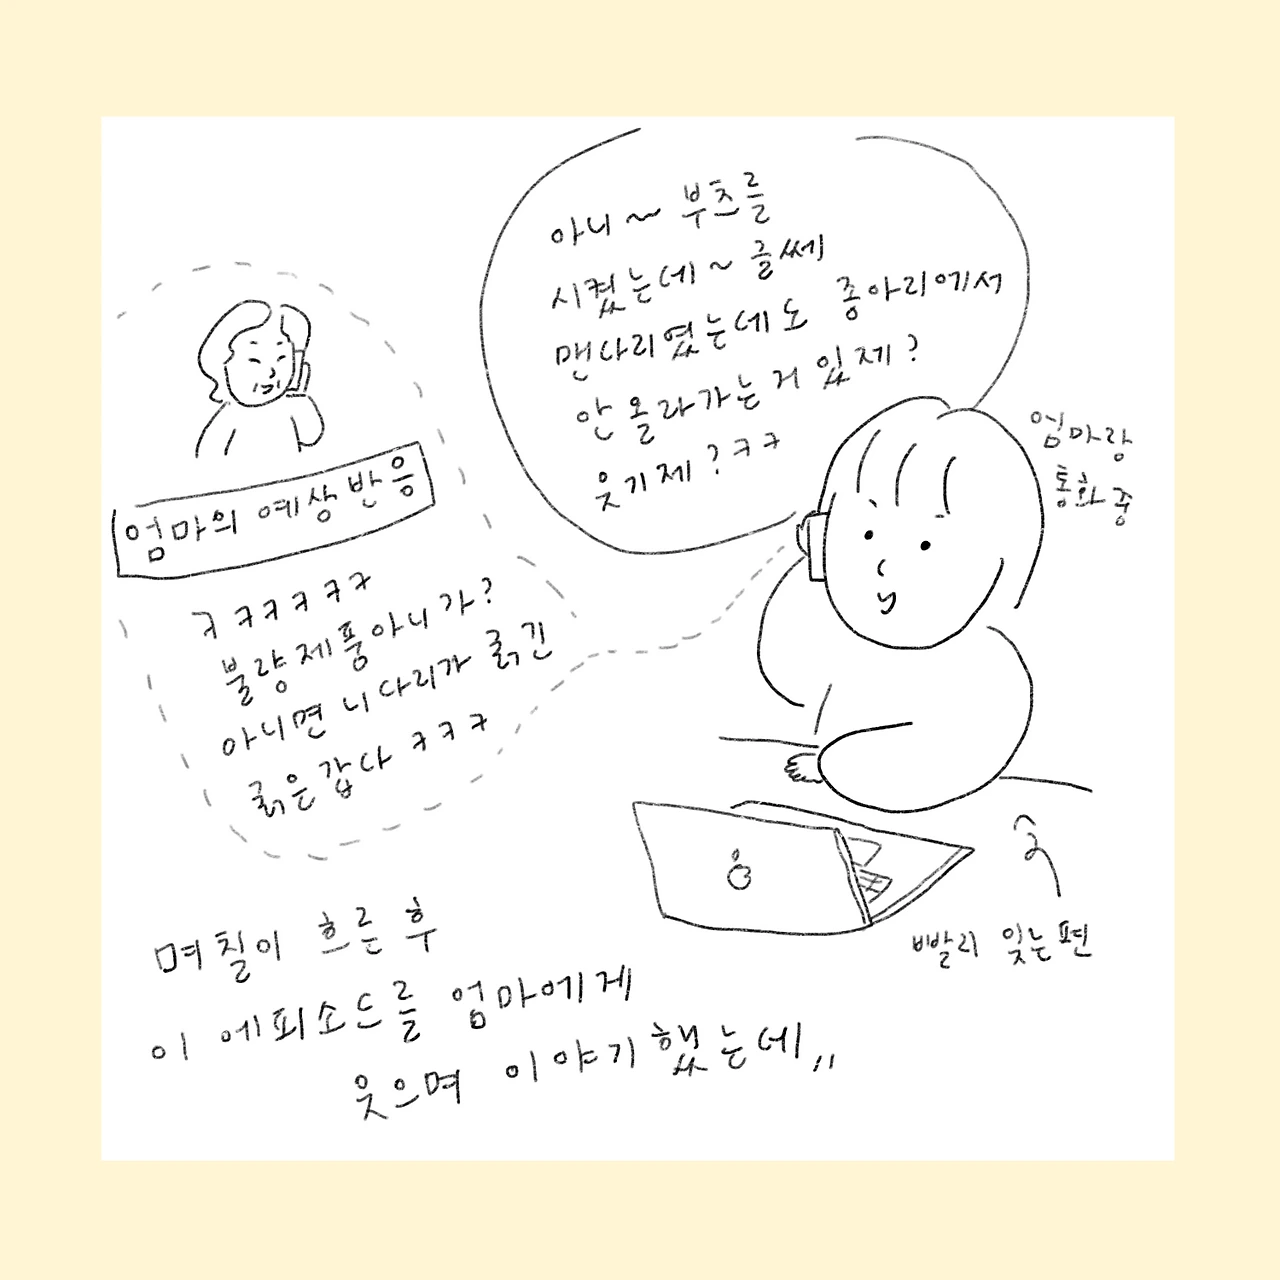 아니~ 부츠를
시켰는데~ 글쎄
맨다리였는데도 종아리에서
안 올라가는거 있제?
웃기제?ㅋㅋ
엄마랑
통화중
엄마의 예상반응
ㅋㅋㅋㅋㅋㅋ
불량제품아니가?
아니면 니다리가 굵긴
굵은갑다 ㅋㅋㅋ
빨리 잊는편
며칠이 흐른 후
이 에피소드를 엄마에게
웃으며 이야기했는데,,